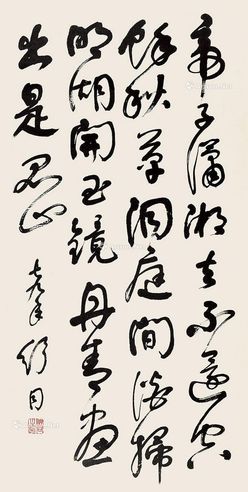 帝子潇湘去不还空
馀秋草洞庭间淡扫
明湖开玉镜丹青画
出是君山
舒同